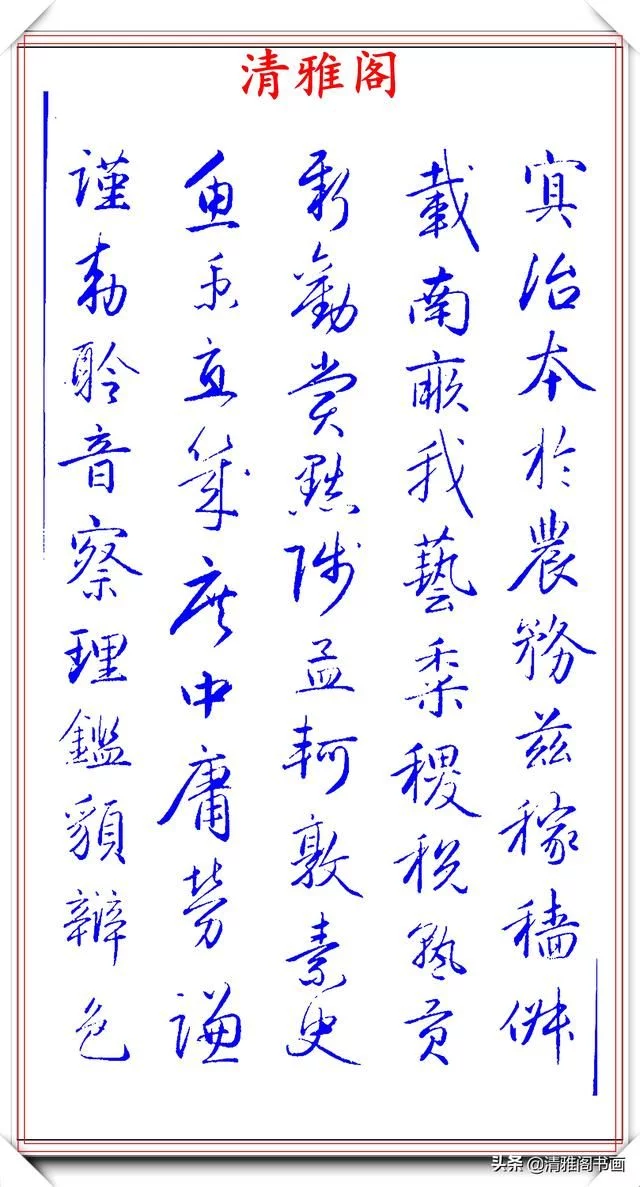 清雅阁
冥治本於農務茲稼穡俶
載南畝我藝黍稷稅熟貢
新勸賞黜陟孟軻敦素史
魚秉直幾庶中庸勞謙
謹勅聆音察理鑑貌辨色
头条 @清雅阁书画